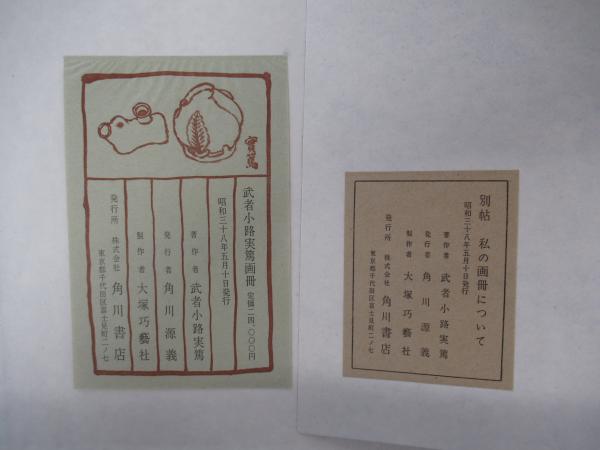 實篤
武者小路実篤画冊 定価二四、〇〇〇円
昭和三十八年五月十日発行
著作者 武者小路実篤
発行者 角川源義
製作者 大塚巧藝社
発行所 株式会社 角川書店
東京都千代田区富士見町二ノ七
別帖 私の画冊について
昭和三十八年五月十日発行
著作者 武者小路実篤
発行者 角川源義
製作者 大塚巧藝社
発行所 株式会社 角川書店
東京都千代田区富士見町二ノ七